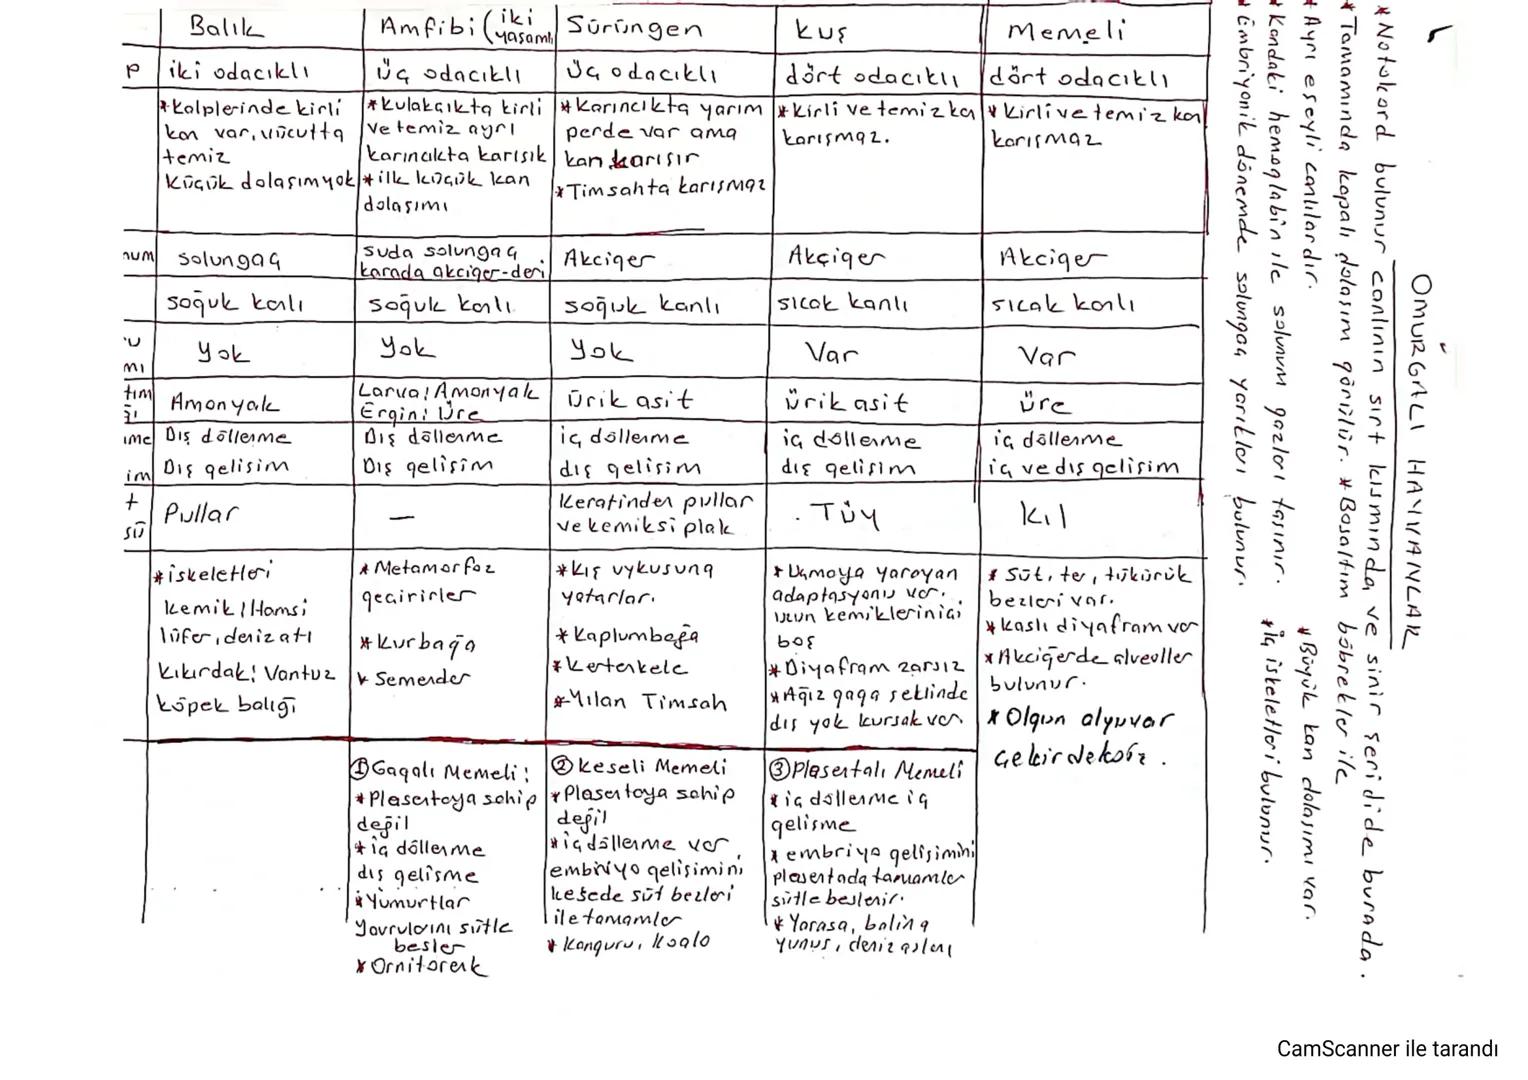 OMURGALI HAYVANLAR
* Notokord bulunur canlının sırt kısmında ve sinir şeridi de burada.
* Tamamında kapalı dolaşım görülür. * Boşaltım böbrekler ile
* Ayrı eşeyli canlılardır. * Büyük kan dolaşımı var.
* Kandaki hemoglabin ile solunum gazları taşınır. * İç iskeletleri bulunur.
* Embriyonik dönemde solungaç yarıkları bulunur.
Balık
Amfibi (iki yaşamlı
Sürüngen
Kuş
Memeli
P
iki odacıklı
üç odacıklı
üç odacıklı
dört odacıklı
dört odacıklı
* kalplerinde kirli
kan var, vücutta
temiz
Küçük dolaşım yok
* kulakçıkta kirli
ve temiz ayrı
karıncıkta karışık
* ilk küçük kan
dolaşımı
* Karıncıkta yarım
perde var ama
kan karışır
* Timsahta karışmaz
* kirli ve temiz kan
karışmaz.
* kirli ve temiz kan
karışmaz
num
solungaç
suda solungaç
karada akciğer-deri
Akciğer
Akciğer
Akciğer
soğuk kanlı
soğuk kanlı
soğuk kanlı
sıcak kanlı
sıcak kanlı
'u
mı
Yok
Yok
Yok
Var
Var
tım
ğı
Amonyak
Larva: Amonyak
Ergin: Üre
Ürik asit
ürik asit
üre
ıme
im
Dış döllenme
Dış gelişim
Dış döllenme
Dış gelişim
iç döllenme
dış gelişim
iç döllenme
dış gelişim
iç döllenme
iç ve dış gelişim
t
sü
Pullar
—
Keratinden pullar
ve kemiksi plak
. Tüy
Kıl
* iskeletleri
kemik: Hamsi
lüfer, deniz atı
kıkırdak: Vantuz
köpek balığı
* Metamorfoz
geçirirler
* Kurbağa
* Semender
* Kış uykusuna
yatarlar.
* Kaplumbağa
* Kertenkele
* Yılan Timsah
* Uçmaya yarayan
adaptasyonu var.
uzun kemiklerin içi
boş
* Diyafram zarsız
* Ağız gaga şeklinde
diş yok kursak var
* Süt, ter, tükürük
bezleri var.
* Kaslı diyafram var
* Akciğerde alveoller
bulunur.
* Olgun alyuvar
çekirdeksiz.
① Gagalı Memeli:
* Plasentaya sahip
değil
* iç döllenme
dış gelişme
* Yumurtlar
Yavrularını sütle
besler
* Ornitorenk
② Keseli Memeli
* Plasentaya sahip
değil
* iç döllenme var
embriyo gelişimini
kesede süt bezleri
ile tamamlar
* Kanguru, Koala
③ Plasentalı Memeli
* iç döllenme iç
gelişme
* embriyo gelişimini
plasentada tamamlar
sütle beslenir.
* Yarasa, balina
yunus, deniz aslanı
CamScanner ile tarandı